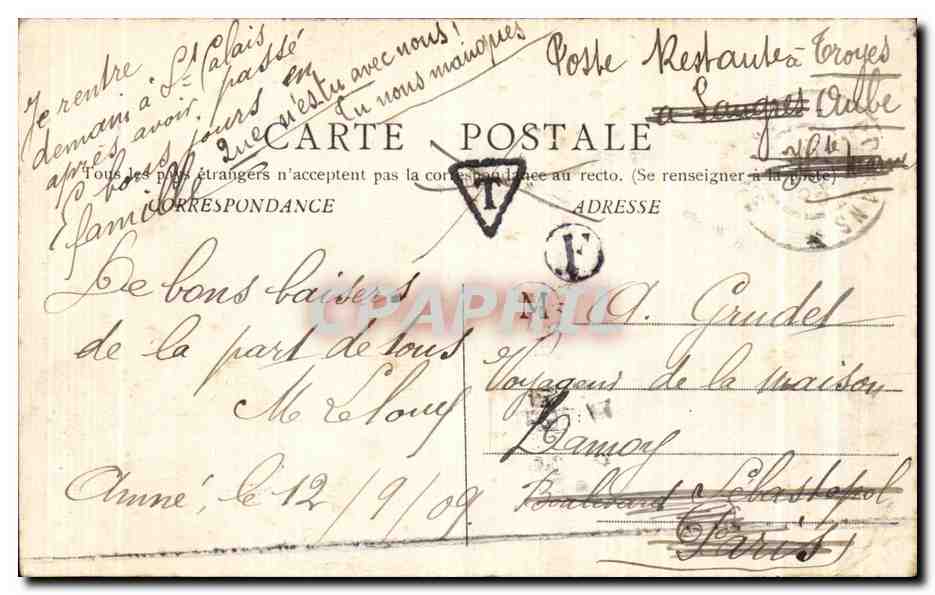 Je rentre
demain à St Calais
après avoir passé
6 bons jours en
famille
Que n'es tu avec nous !
Tu nous manques
Poste Restante à Troyes
à Langres Aube
Hte Marne
CARTE POSTALE
Tous les pays étrangers n'acceptent pas la correspondance au recto. (Se renseigner à la poste)
T
CORRESPONDANCE
ADRESSE
F
De bons baisers
de la part de tous
M
Amné, le 12/9/09
M. A. Grudet
Voyageur de la maison
Damoy
Boulevard Sébastopol
Paris
CPAPHIL